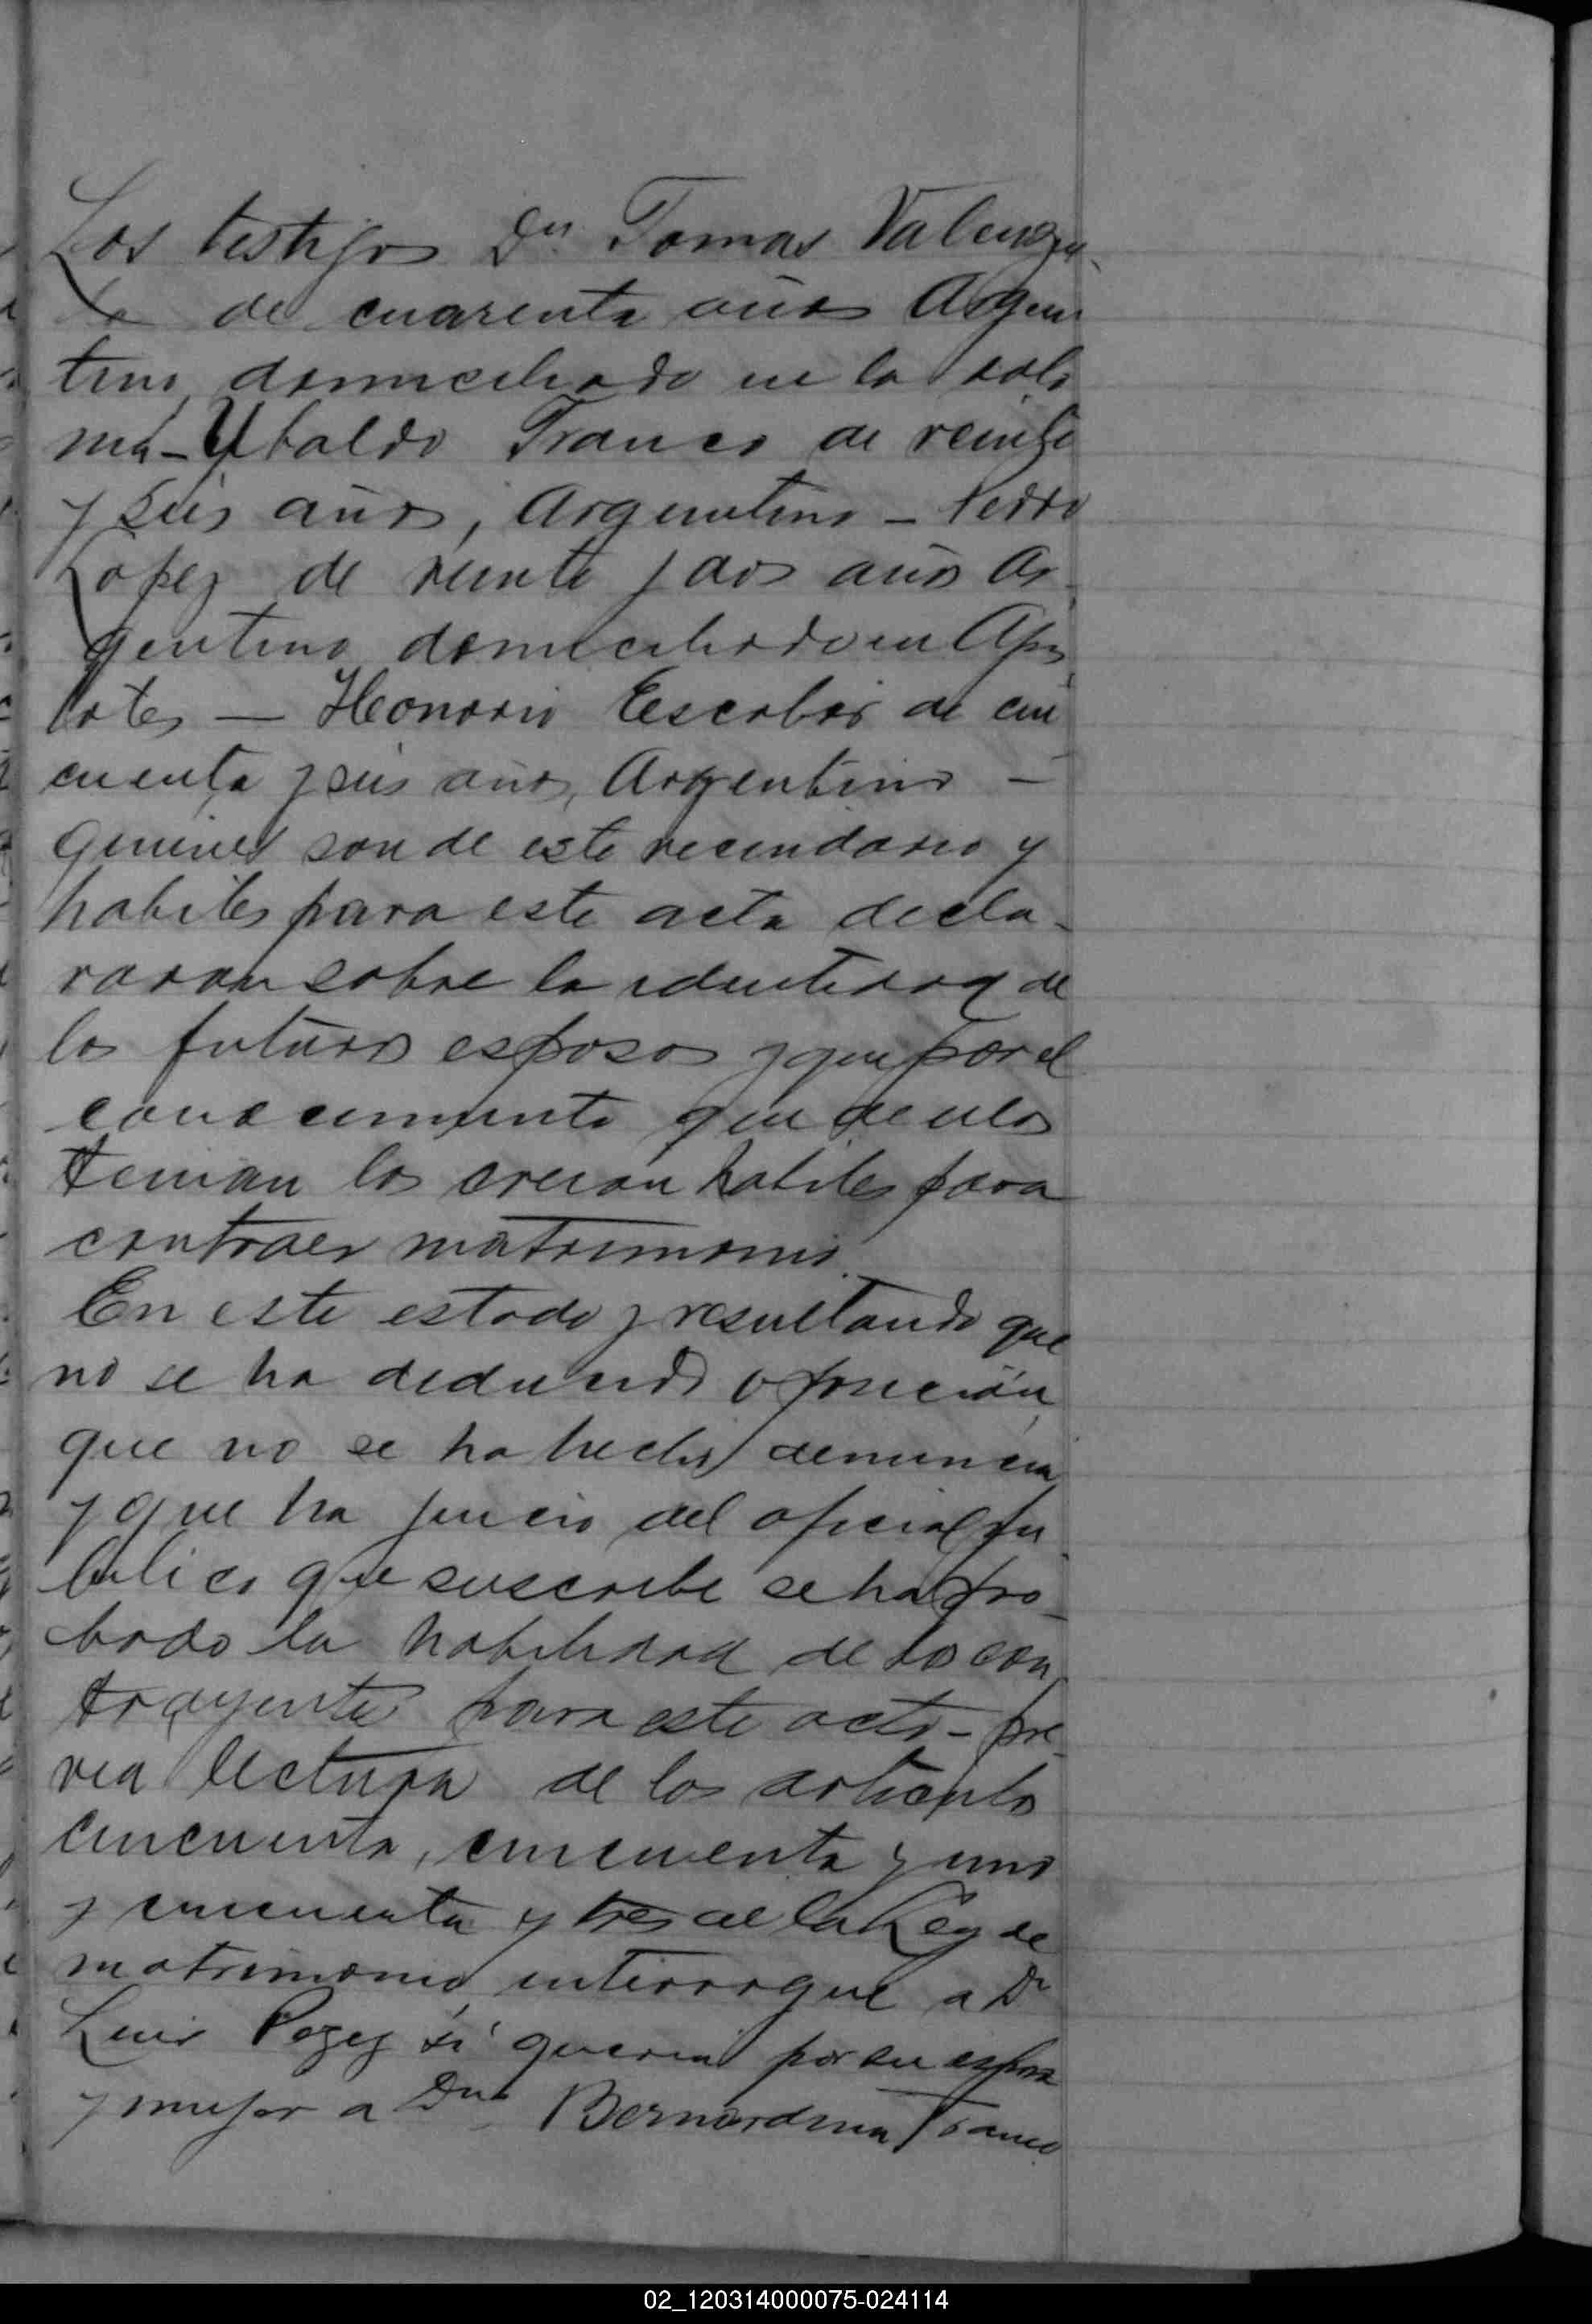 Los testigos Dn Tomas Valenzue
la de cuarenta años Argen
tino, domiciliado en la colo
nia - Ubaldo Franco de veinte
y seis años, Argentino - Pedro
Lopez de veinte y dos años Ar-
gentino domiciliado en Apos
toles — Honorio Escobar de cin
cuenta y seis años, Argentino —
quienes son de este vecindario y
habiles para este acta decla-
raron sobre la identidad de
los futuros esposos y que por el
conocimiento que de ellos
tenian los creian habiles para
contraer matrimonio.
En este estado y resultando que
no se ha deducido oposición
que no se ha hecho denuncia
y que ha juicio del oficial pu
blico que suscribe se ha pro-
bado la habilidad de los con
trayentes para este acto - pre-
via lectura de los articulos
cincuenta, cincuenta y uno
y cincuenta y tres de la Ley de
matrimonio, interrogue a Dn
Luis si queria por su esposa
y mujer a Dna Bernardina Franco
02_120314000075-024114